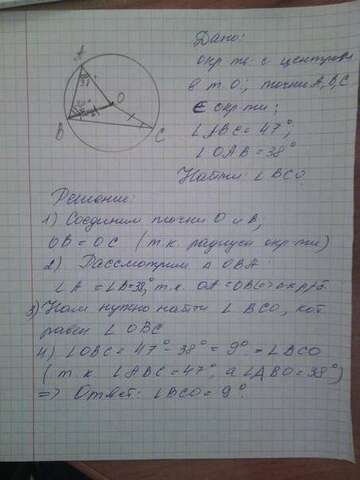 Дано:
окр-ть с центром
в т. О; точки А, В, С
∈ окр-ти;
∠ABC = 47°,
∠OAB = 38°
Найти: ∠BCO
A
38°
O
B
C
Решение:
1) Соединим точки О и В,
OB = OC (т.к. радиусы окр-ти)
2) Рассмотрим Δ OBA:
∠A = ∠B = 38°, т.к. OA = OB
3) Нам нужно найти ∠BCO, кот.
равен ∠OBC
4) ∠OBC = 47° - 38° = 9° = ∠BCO
(т.к. ∠ABC = 47°, а ∠ABO = 38°)
=> Ответ: ∠BCO = 9°.